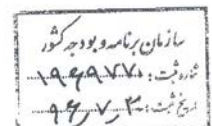 سازمان برنامه و بودجه کشور
شماره ثبت: ۱۹۶۹۷۷۰
تاریخ ثبت: ۹۶٫۷٫۳۰